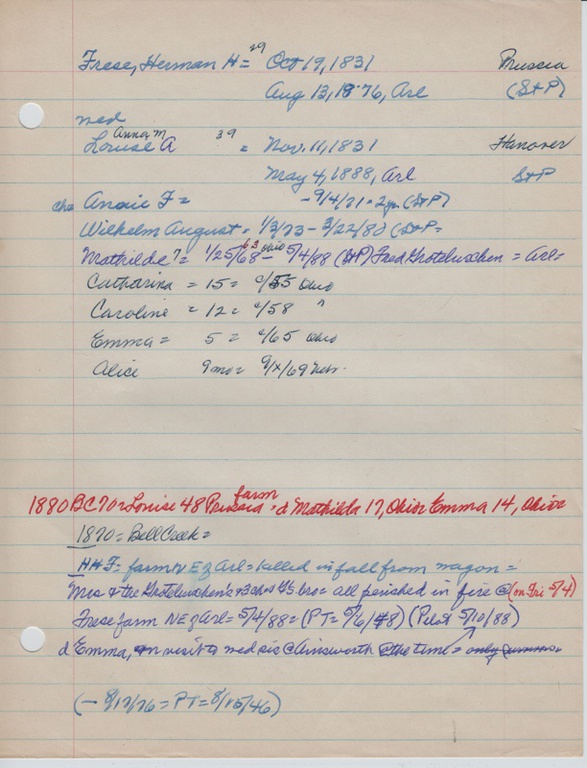 Frese, Herman H = 39 Oct 19, 1831 Prussia
Aug 13, 1876, Arl (S+P)
med
Anna M
Louise A 39 = Nov. 11, 1831 Hanover
May 4, 1888, Arl S+P
chn Annie F = - 9/4/71 = 2yr (S+P)
Wilhelm August = 1/3/73 - 3/22/80 (S+P =
Mathilde 7 = 1/25/68 63 Ohio - 5/4/88 (S+P) Fred Grotelueschen = Arl =
Catharina = 15 = c/55 Ohio
Caroline = 12 = c/58 "
Emma = 5 = c/65 Ohio
Alice 9mo = 9/x/69 Nebr.
farm
1880 BC 70 = Louise 48 Prussia, d Mathilda 17, Ohio; Emma 14, Ohio
1870 = Bell Creek =
HHF = farmer NE of Arl = killed in fall from wagon =
Mrs & the Grotelueschen's + 3 chn G's bro = all perished in fire @ (on Fri 5/4)
Frese farm NE of Arl = 5/4/88 = (PT = 5/6/88) (Pilot 5/10/88)
d Emma, on visit to med sis @ Ainsworth @ the time = only
(- 8/12/76 = PT = 8/15/76)